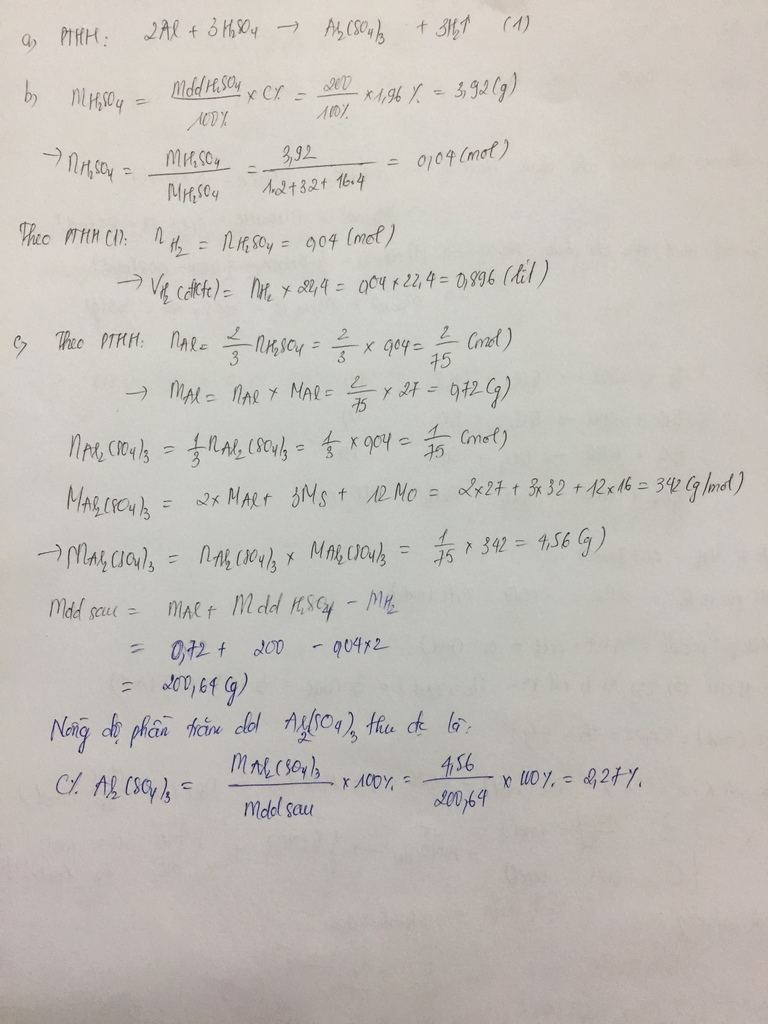 a) PTHH: 2Al + 3H₂SO₄ → Al₂(SO₄)₃ + 3H₂↑ (1)
b) mH₂SO₄ = mddH₂SO₄/100% × C% = 200/100% × 1,96% = 3,92(g)
→ nH₂SO₄ = mH₂SO₄/MH₂SO₄ = 3,92/1.2+32+16.4 = 0,04(mol)
Theo PTHH(1): nH₂ = nH₂SO₄ = 0,04 (mol)
→ VH₂(đktc) = nH₂ × 22,4 = 0,04 × 22,4 = 0,896 (lít)
c) Theo PTHH: nAl = 2/3 nH₂SO₄ = 2/3 × 0,04 = 2/75 (mol)
→ mAl = nAl × MAl = 2/75 × 27 = 0,72(g)
nAl₂(SO₄)₃ = 1/3 nAl₂(SO₄)₃ = 1/3 × 0,04 = 1/75 (mol)
MAl₂(SO₄)₃ = 2×MAl + 3MS + 12MO = 2×27 + 3×32 + 12×16 = 342(g/mol)
→ mAl₂(SO₄)₃ = nAl₂(SO₄)₃ × MAl₂(SO₄)₃ = 1/75 × 342 = 4,56(g)
mdd sau = mAl + mdd H₂SO₄ - mH₂
= 0,72 + 200 - 0,04×2
= 200,64(g)
Nồng độ phần trăm dd Al₂(SO₄)₃ thu đc là:
C% Al₂(SO₄)₃ = mAl₂(SO₄)₃/mdd sau × 100% = 4,56/200,64 × 100% = 2,27%.